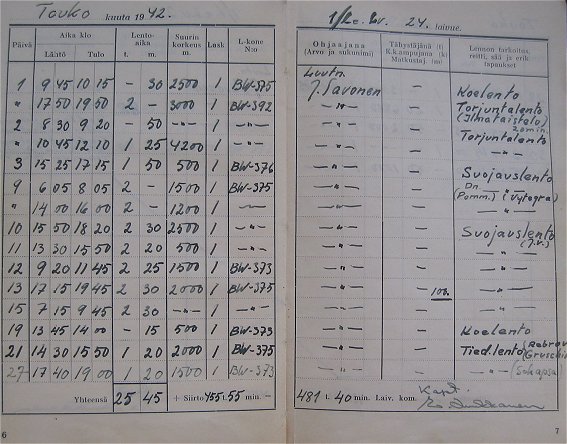 Touko kuuta 1942.
1/Le. Lv. 24. laivue.
Päivä Aika klo Lähtö Tulo Lento-aika t. m. Suurin korkeus m. Lask L-kone N:o
Ohjaajana (Arvo ja sukunimi) Tähystäjänä (t) K.kampujana (k) Matkustaj. (m) Lennon tarkoitus, reitti, sää ja erik tapaukset
Luutn.
1 9 45 10 15 – 30 2500 1 BW-375 J. Savonen – Koelento
" 17 50 19 50 2 – 3000 1 BW-392 –"– – Torjuntalento
(Ilmataistelo)
20 min.
2 8 30 9 20 – 50 –"– 1 –"– –"– – Torjuntalento
" 10 45 12 10 1 25 4200 1 –"– –"– – –"–
3 15 25 17 15 1 50 500 1 BW-376 –"– – Suojauslento
9 6 05 8 05 2 – 1500 1 BW-375 –"– – Dn. –"–
(Pomm.) (Vytegra)
" 14 00 16 00 2 – 1200 1 –"– –"– – –"–
10 15 50 18 20 2 30 2500 1 –"– –"– – Suojauslento
(J.v.)
11 13 30 15 50 2 20 500 1 –"– –"– – –"–
12 9 20 11 45 2 25 1500 1 BW-373 –"– – –"–
13 17 15 19 45 2 30 2000 1 BW-375 –"– 100. –"–
15 7 15 9 45 2 30 –"– 1 –"– –"– – –"–
19 13 45 14 00 – 15 500 1 BW-373 –"– – Koelento
21 14 30 15 50 1 20 2000 1 BW-375 –"– – Tied.lento
27 17 40 19 00 1 20 1500 1 BW-373 –"– – –"–
Yhteensä 25 45 + Siirto 455 t. 55 min. –
481 t. 40 min. Laiv. kom. Kapt.
6
7